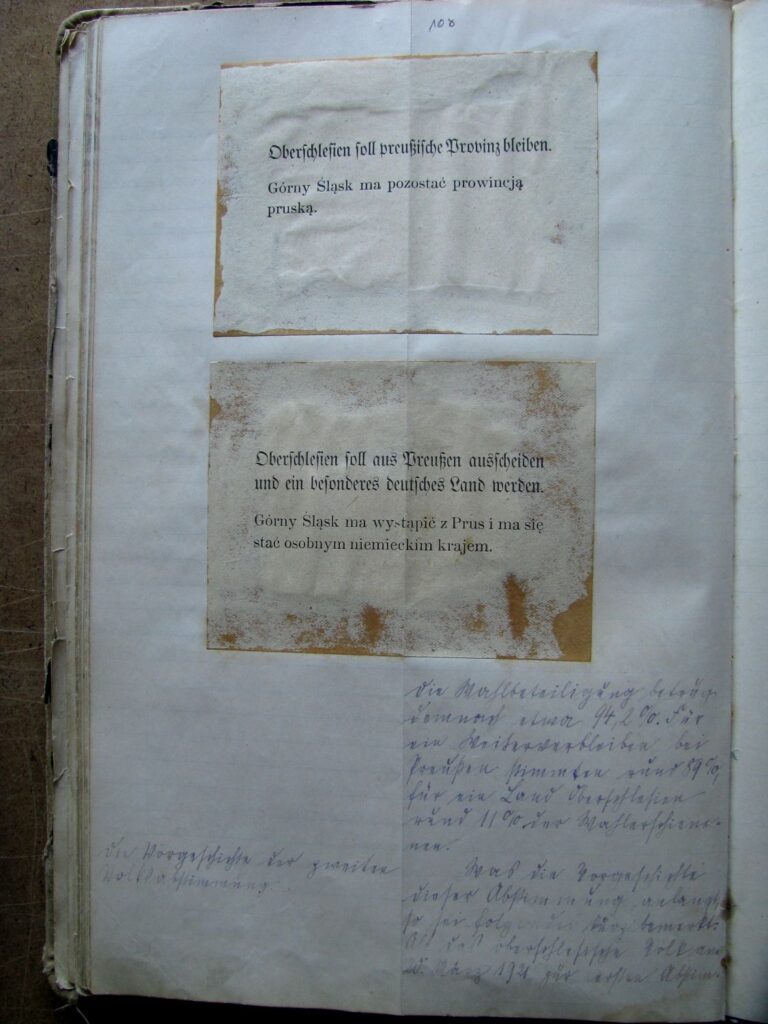 108
Oberschlesien soll preußische Provinz bleiben.
Górny Śląsk ma pozostać prowincją
pruską.
Oberschlesien soll aus Preußen ausscheiden
und ein besonderes deutsches Land werden.
Górny Śląsk ma wystąpić z Prus i ma się
stać osobnym niemieckim krajem.
Die Vorgeschichte der zweiten
Volksabstimmung.
Die Wahlbeteiligung betrug
demnach etwa 94,2%. Für
ein Weiterverbleiben bei
Preußen stimmten rund 89%,
für ein Land Oberschlesien
rund 11% der Wahlerschiene-
nen.
Was die Vorgeschichte
dieser Abstimmung anlangt,
so sei folgendes kurz bemerkt:
Als das oberschlesische Volk am
20. März 1921 zur ersten Abstim-